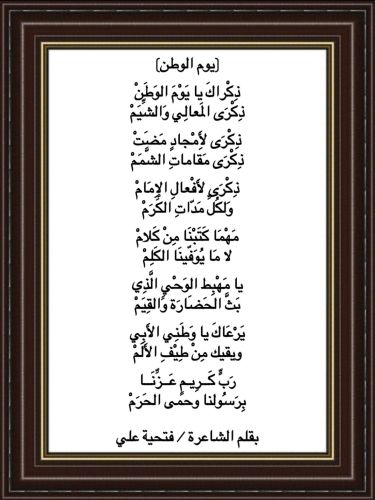 (يوم الوطن)
ذِكْراكَ يا يَوْمَ الوَطَنْ
ذِكْرَى المَعالِي وَالشِّيَمْ
ذِكْرَى لأَمْجادٍ مَضَتْ
ذِكْرَى مَقاماتِ الشَّمَمْ
ذِكْرَى لأَفْعالِ الإِمامْ
وَلكُلِّ مَدّاتِ الكَرَمْ
مَهْمَا كَتَبْنَا مِنْ كَلامْ
لا مَا يُوَفّينَا الكَلِمْ
يا مَهْبِط الوَحْيِ الَّذِي
بَثَّ الحَضَارَة وَالقِيَمْ
يَرْعَاكَ يا وَطَنِي الأَبِي
ويقيك مِنْ طيْفِ الأَلَمْ
رَبٌّ كَـرِيـمٍ عَـزّنَـا
بِرَسُولنا وحمَى الحَرَمْ
بقلم الشاعرة / فتحية علي